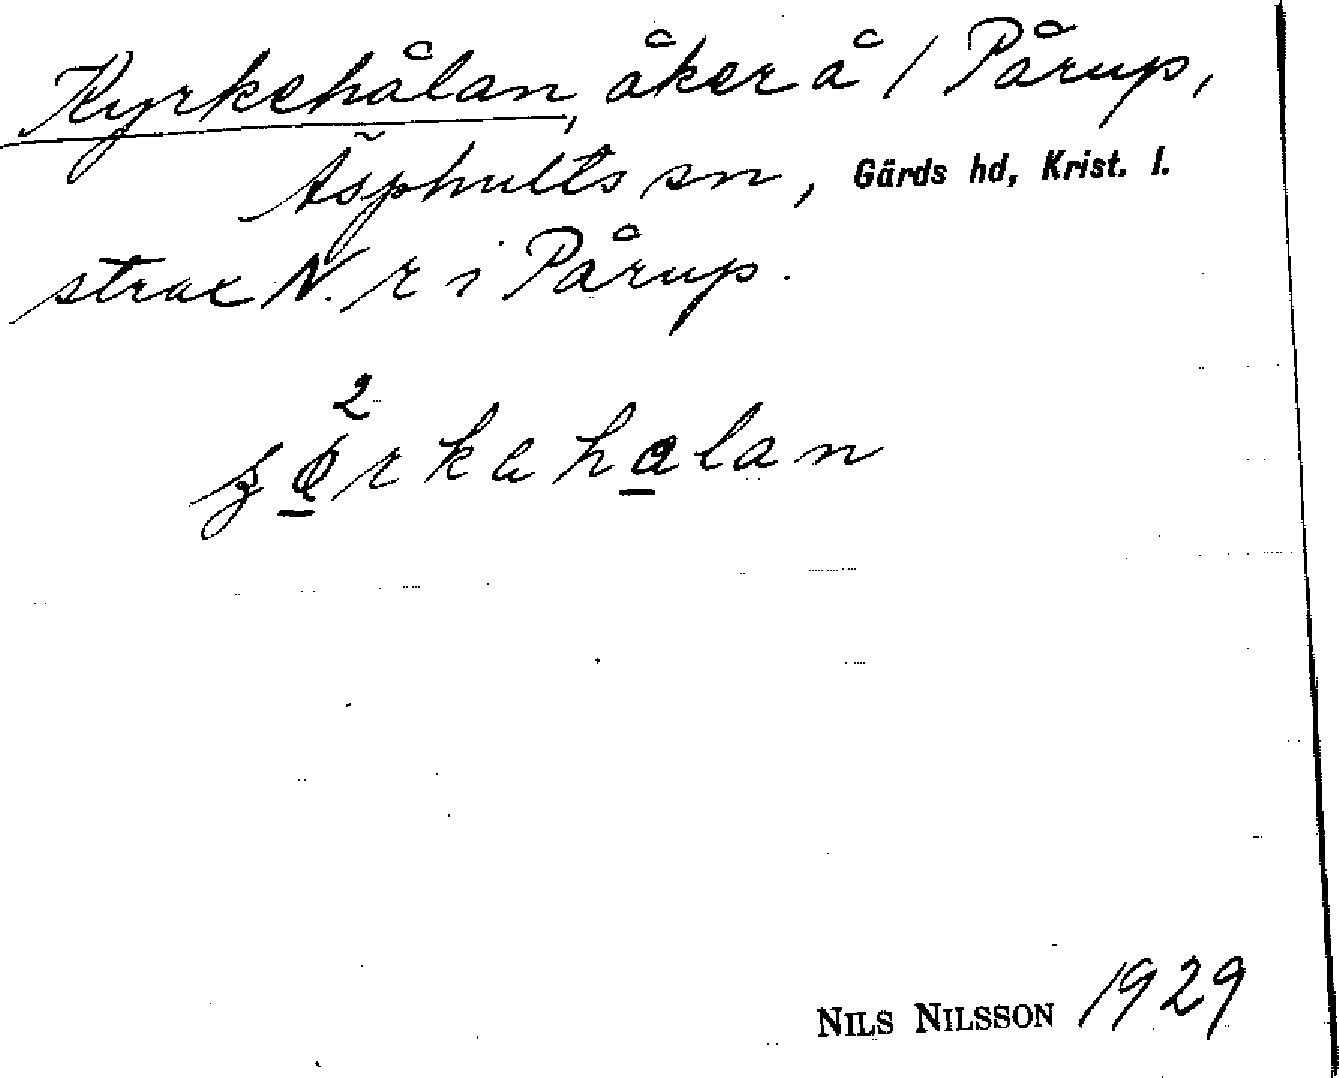 Kyrkehålan, åker å / Pårup,
Äsphults sn, Gärds hd, Krist. l.
strax N. r i Pårup.
2
NILS NILSSON 1929